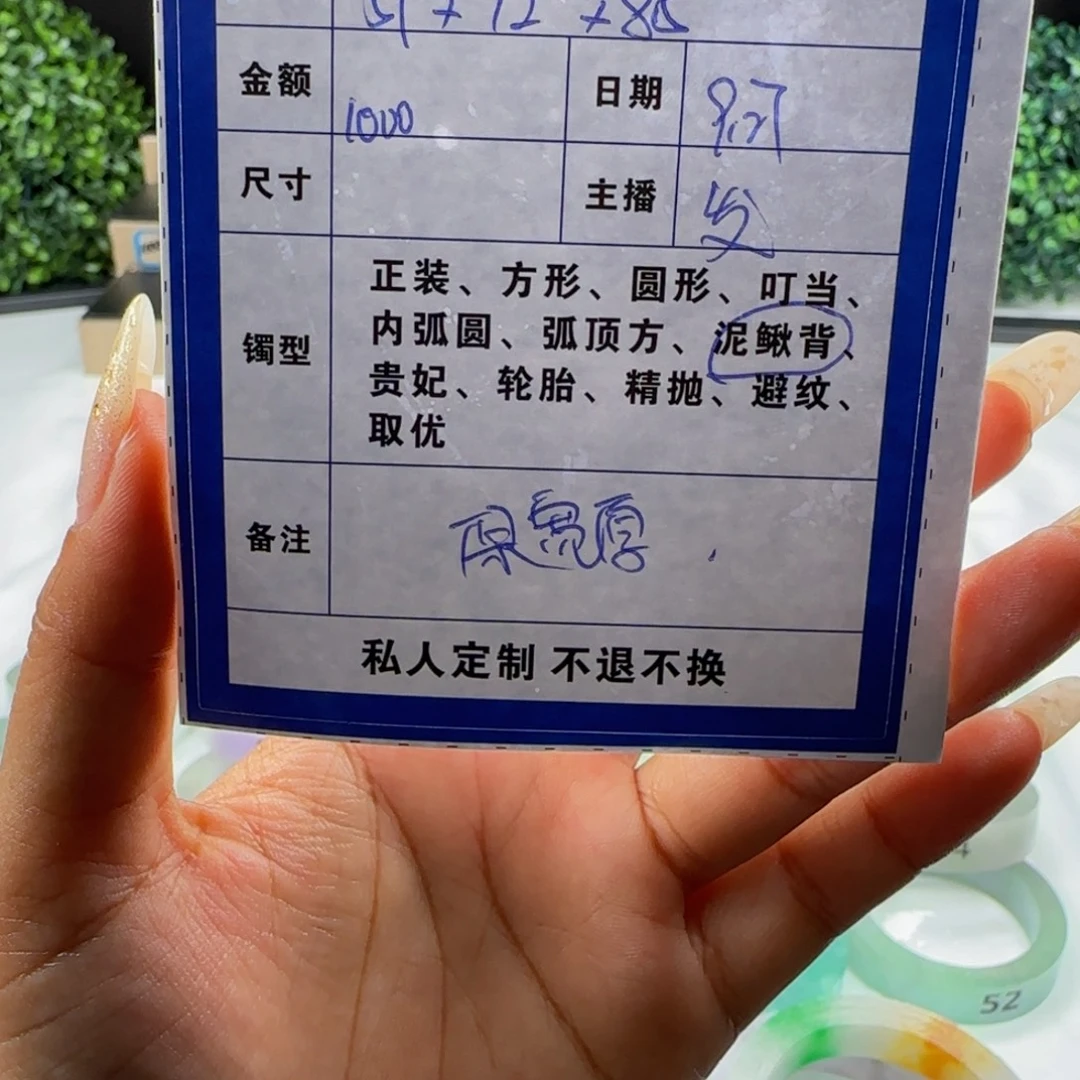 金额
1000
日期
9.27
尺寸
主播
发
镯型
正装、方形、圆形、叮当、
内弧圆、弧顶方、泥鳅背、
贵妃、轮胎、精抛、避纹、
取优
备注
原宽厚
私人定制 不退不换
52